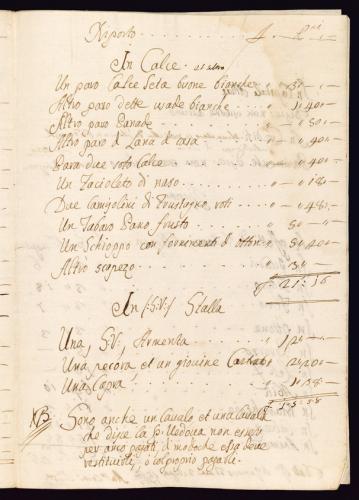 Riporto
In Calce. et altro
Un paro Calce Seta buone bianche " 3 "
Altro paro dette usade bianche " 1: 40
Altro paro Parade " 50
Altro paro d Lana d casa " 40
Para due roto Calce " 40
Un Facioleto di naso " 18
Due Camisolini d frustagno roti " 48
Un Tabaro Pano frusto 5
Un Schioppo con fornimenti d otton 5: 40
Altro scavezo " 3
21: 36
In (S:V:) Stalla
Una, S:V: Armenta
Una pecora, et un giovine
Una Capra
NB Sono anche un Cavalo et una Cavala
che dice la Sa Vedova non essere
per anco pagati, di modo che essa deve
restituirli, o col proprio pagarli.